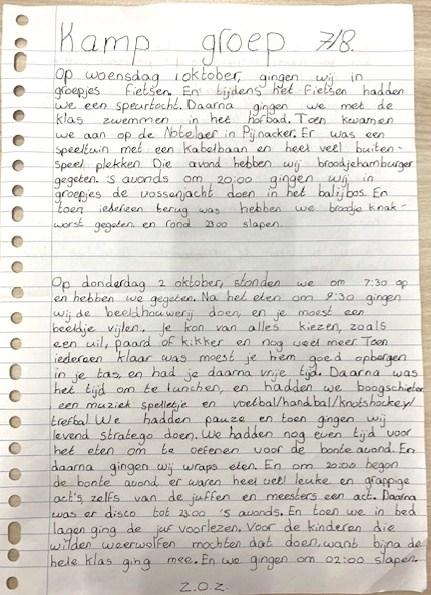 Kamp groep 7/8.
Op woensdag 1 oktober, gingen wij in
groepjes fietsen. En tijdens het fietsen hadden
we een speurtocht. Daarna gingen we met de
klas zwemmen in het hofbad. Toen kwamen
we aan op de Notelaer in Pijnacker. Er was een
speeltuin met een kabelbaan en heel veel buiten-
speel plekken. Die avond hebben wij broodjehamburger
gegeten. 's avonds om 20:00 gingen wij in
groepjes de vossenjacht doen in het balijbos. En
toen iedereen terug was hebben we broodje knak-
worst gegeten en rond 23:00 slapen.
Op donderdag 2 oktober, stonden we om 7:30 op
en hebben we gegeten. Na het eten om 8:30 gingen
wij de beeldhouwerij doen, en je moest een
beeldje vijlen. Je kon van alles kiezen, zoals
een uil, paard of kikker en nog veel meer. Toen
iedereen klaar was moest je hem goed opbergen
in je tas, en had je daarna vrije tijd. Daarna was
het tijd om te lunchen, en hadden we boogschieten
een muziek spelletje en voetbal/handbal/knotshockey/
trefbal. We hadden pauze en toen gingen wij
levend stratego doen. We hadden nog even tijd voor
het eten om te oefenen voor de bonte avond. En
daarna gingen wij wraps eten. En om 20:00 begon
de bonte avond er waren heel veel leuke en grappige
act's zelfs van de juffen en meesters een act. Daarna
was er disco tot 23.00 's avonds. En toen we in bed
lagen ging de juf voorlezen. Voor de kinderen die
wilden weerwolfen mochten dat doen, want bijna de
hele klas ging mee. En we gingen om 02:00 slapen.
Z.O.Z.